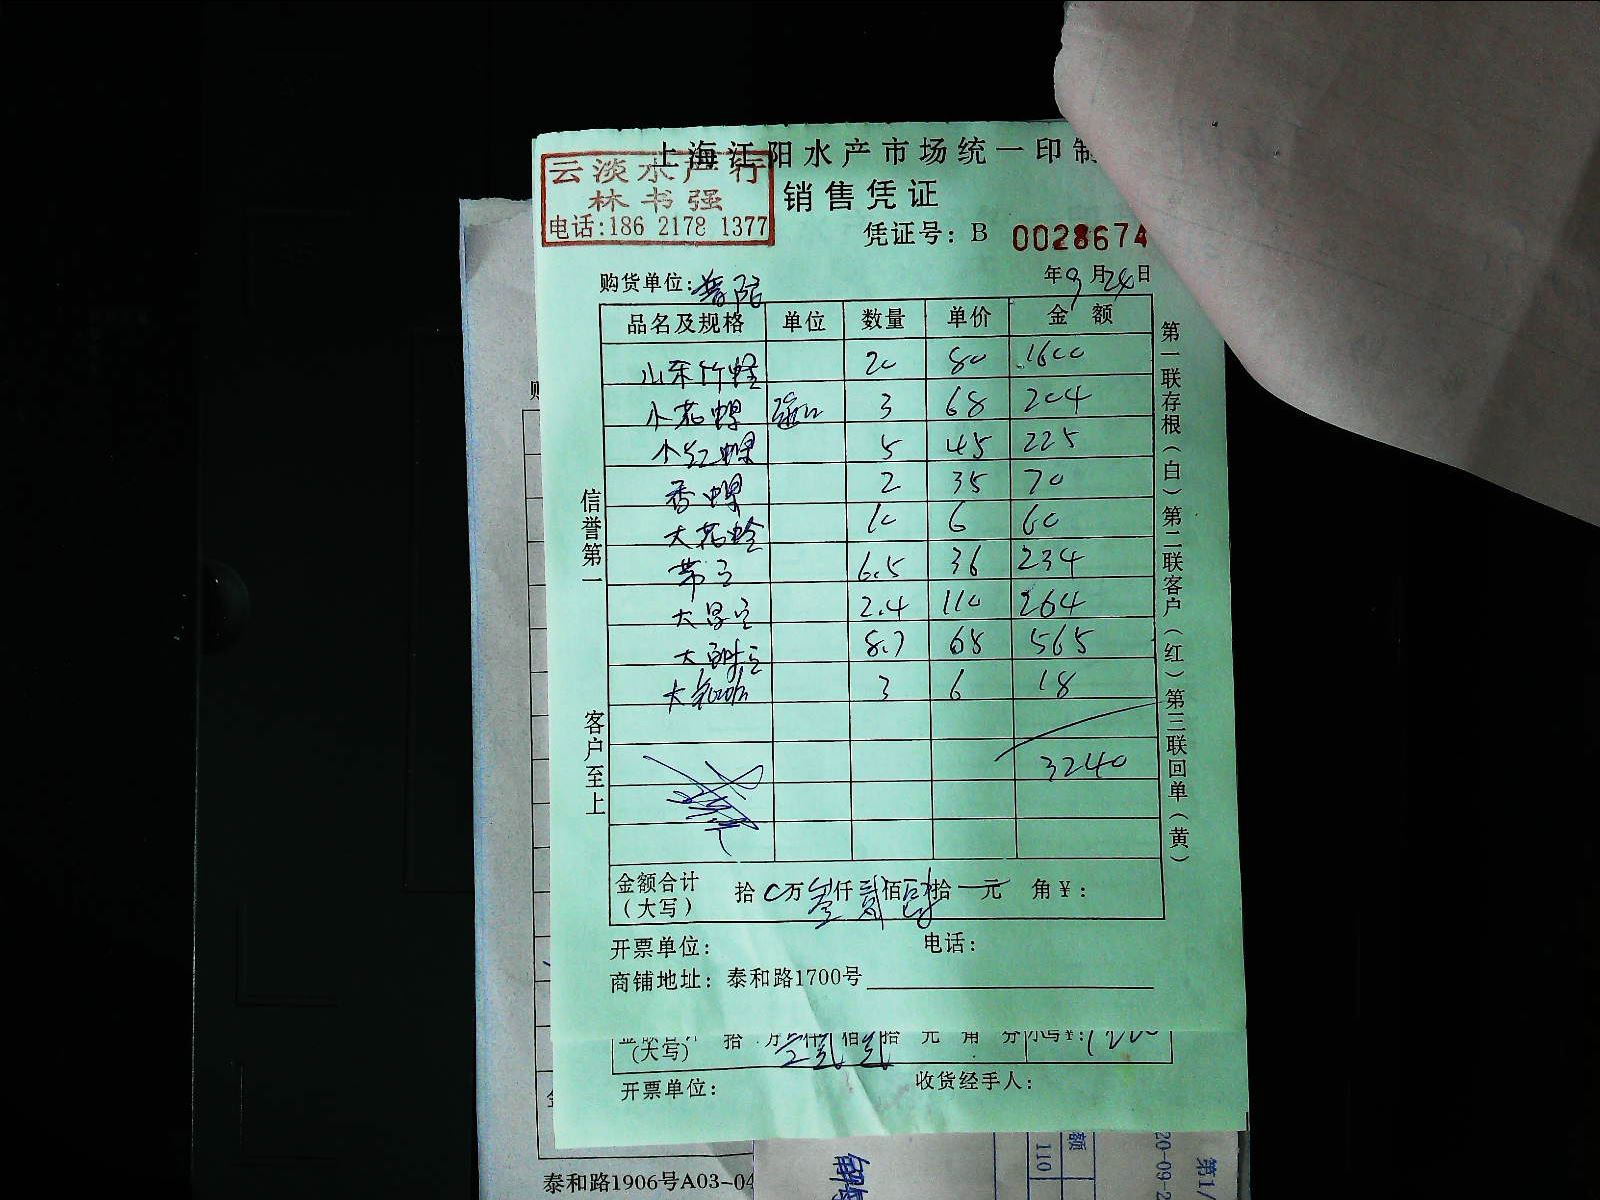 上海江阳水产市场统一印制
云淡水产行
林书强
电话:186 2178 1377
销售凭证
凭证号: B 0028674
购货单位:普陀 年9月24日
品名及规格 单位 数量 单价 金额
山东竹蛏 20 80 1600
小花螺 3 68 204
小红螺 5 45 225
香螺 2 35 70
大花蛤 10 6 60
带子 6.5 36 234
2.4 110 264
8.7 65 565
3 6 18
3240
信誉第一
客户至上
第一联存根(白)第二联客户(红)第三联回单(黄)
金额合计
(大写) 拾0万叁仟贰佰肆拾 元 角¥:
开票单位: 电话:
商铺地址: 泰和路1700号
(大写) 拾 万 仟 佰 拾 元 角 分 小写¥:
开票单位: 收货经手人:
泰和路1906号A03-04
额
110
20-09-2
第1/